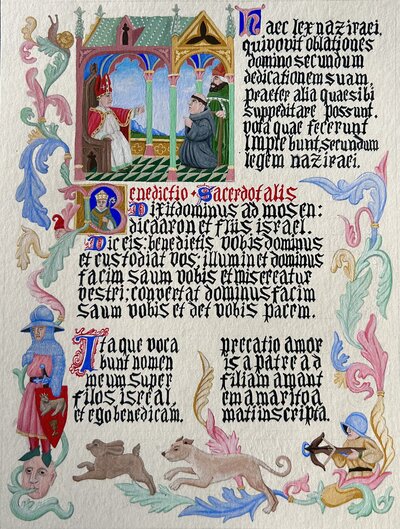 Haec lex naziraei,
qui vovit oblationes
domino secundum
dedicationem suam,
praeter alia quae sibi
suppeditare possunt.
vota quae fecerunt
implebunt, secundum
legem naziraei.
Benedictio Sacerdotalis
Dixit dominus ad mosen:
dic aaron et filis israel.
Dic eis: benedictis vobis dominus
et custodiat vos; illuminet dominus
facim saum vobis et misereatur
vestri; convertat dominus facim
saum vobis et det vobis pacem.
Itaque voca
bunt nomen
meum super
filos isreal,
et ego benedicam.
precatio amor
is a patre ad
filiam amant
em a marito a
mati inscripta.